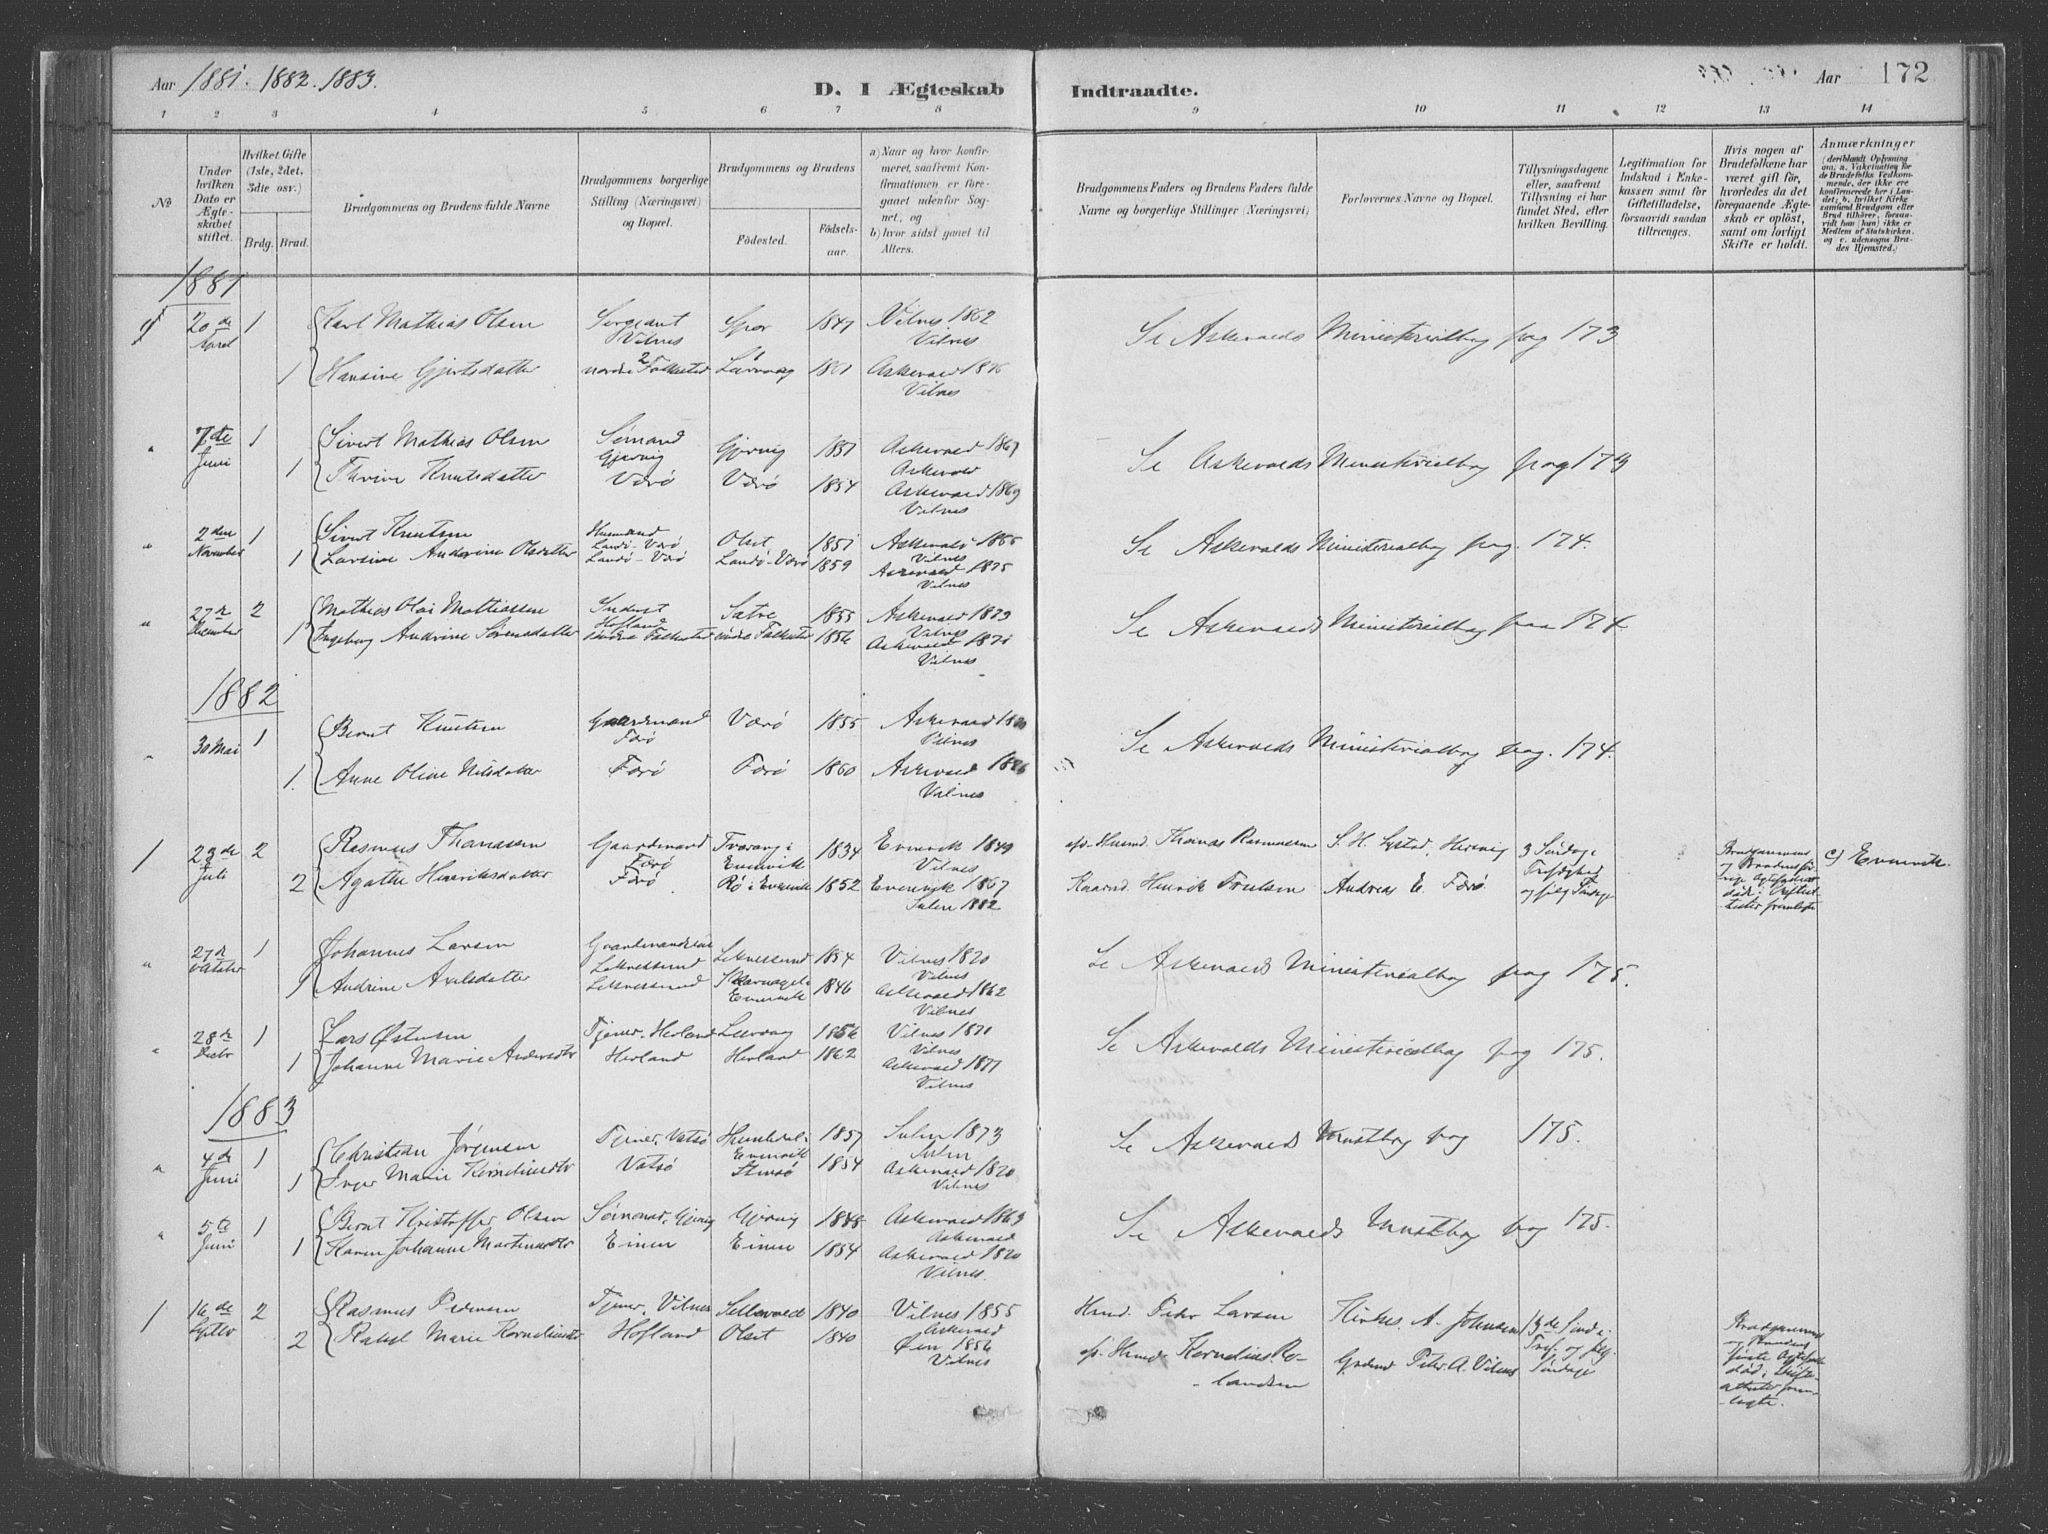 Aar 1881. 1882. 1883.
D. I Ægteskab Indtraadte.
Aar 172
1 2 3 4 5 6 7 8 9 10 11 12 13 14
No
Under hvilken Dato er Ægteskabet stiftet.
Hvilket Gifte (1ste, 2det, 3die osv.)
Brdg. Brud.
Brudgommens og Brudens fulde Navne
Brudgommens borgerlige Stilling (Næringsvei) og Bopæl.
Brudgommens og Brudens
Fødested. Fødselsaar.
a) Naar og hvor konfirmeret, saafremt Konfirmationen er foregaaet udenfor Sognet, og
b) hvor sidst gaaet til Alters.
Brudgommens Faders og Brudens Faders fulde Navne og borgerlige Stillinger (Næringsvei)
Forlovernes Navne og Bopæl.
Tillysningsdagene eller, saafremt Tillysning ei har fundet Sted, efter hvilken Bevilling.
Legitimation for Indskud i Enkekassen samt for Giftetilladelse, forsaavidt saadan tiltrænges.
Hvis nogen af Brudefolkene har været gift før, hvorledes da det foregaaende Ægteskab er opløst, samt om lovligt Skifte er holdt.
Anmærkninger
(deriblandt Oplysning om, a. Vakcination for de Brudefolks Vedkommende, der ikke ere konfirmerede her i Landet; b. hvilket Kirkesamfund Brudgom eller Brud tilhører, forsaavidt han (hun) ikke er Medlem af Statskirken, og c. udensogns Brudes Hjemsted.)
1881
20de April 1 Karl Mathias Olsen Sergeant Vilnes 1847 Vilnes 1862 Vilnes Se Askevolds Ministerialbog pag 173
1 Hansine Gjertsdatter nordre Folkestad 1861 Askevold 1876 Vilnes
" 7de Juni 1 Sivert Mathias Olsen Sømand Gjervig Gjervig 1851 Askevold 1867 Askevold Se Askevolds Ministerialbog pag 173
1 Thrine Knutsdatter Værø Værø 1854 Askevold 1869 Vilnes
" 2den November 1 Sivert Knutsen Husmand Landø-Værø Olset 1851 Askevold 1866 Vilnes Se Askevolds Ministerialbog pag. 174.
1 Larsine Andrine Olsdatter Landø-Værø Landø-Værø 1859 Askevold 1875 Vilnes
" 27de December 2 Mathias Olai Mathiassen Inderst Hofland Sætre 1855 Askevold 1873 Vilnes Se Askevolds Ministerialbog pag 174.
1 Ingeborg Andrine Sørensdatter indre Folkestad indre Folkestad 1856 Askevold 1871 Vilnes
1882
" 30 Mai 1 Bernt Knutsen Gaardmand Færø Værø 1855 Askevold 1870 Vilnes Se Askevolds Ministerialbog pag. 174.
1. Anne Oline Nilsdatter Færø Færø 1860 Askevold 1876 Vilnes
1 23de Juli 2 Rasmus Thomassen Gaardmand Færø Tveravg i Evenvik 1834 Evenvik 1849 Vilnes Husmd. Thomas Rasmussen S. H. Systad, Hersvig 3 Søndag i Trefoldighed og følg Søndage c) Evenvik
2 Agathe Henriksdatter Færø Rø i Evenvik 1852 Evenvik 1867 Sulen 1882 Gaardmd. Henrik Troelsen Andreas E. Færø Brudgommens og Brudens forrige Ægtefæller døde; Skifteattester fremlagte
" 27de Oktober 1 Johannes Larsen Gaardmandssøn Leknessund Leknessund 1854 Vilnes 1870 Vilnes Se Askevolds Ministerialbog pag 175.
1 Andrine Axelsdatter Leknessund Evenvik 1846 Askevold 1862 Vilnes
" 28de Decbr 1 Lars Østensen Tjener, Herland Leervaag 1856 Vilnes 1871 Vilnes Se Askevolds Ministerialbog pag 175.
1 Johanne Marie Andersdtr Herland Herland 1862 Askevold 1877 Vilnes
1883
" 4de Juni 1 Christian Jørgensen Tjener, Vatsø Evenvik 1857 Sulen 1873 Sulen Se Askevolds Minstbog pag 175.
1 Inger Marie Kornelinsdtr Vatsø Stensø 1854 Askevold 1870 Vilnes
" 5te Juni 1 Bernt Kristoffer Olsen Sømand, Gjervig Gjervig 1848 Askevold 1863 Askevold Se Askevolds Minstbog pag 175.
1 Karen Johanne Martinusdtr Einen Einen 1854 Askevold 1870 Vilnes.
1 16de Septbr 2 Rasmus Pedersen Tjener, Vilnes Sellevold 1840 Vilnes 1855 Askevold Husmd. Peder Larsen Kirkes. A. Johnsen 13de Sønd i Tref. og følg. Søndage
2 Rakel Marie Kornelinsdtr Hofland Olset 1840 Øen 1856 Vilnes Husmd. Kornelius Rolandsen Gaardmd Peder A. Vilnes Brudgommens og Brudens første Ægtefælle død; Skifteattester fremlagte.